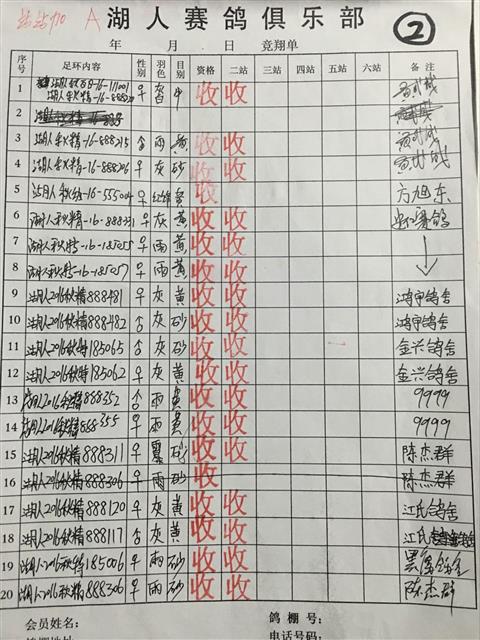 站站加 A 湖人赛鸽俱乐部 ②
年 月 日 竞翔单
序号 足环内容 性别 羽色 目别 资格 二站 三站 四站 五站 六站 备注
1 湖人秋精-16-888 ♀ 灰 牛 收 收
2
3 湖人秋精-16-888215 雨 黄 收 收
4 湖人秋精-16-888206 ♀ 灰 砂 收 收
5 湖人秋红-16-555004 ♀ 收 方旭东
6 湖人秋精-16-888331 ♀ 灰 黄 收 收 赛鸽
7 湖人秋特-16-185055 ♀ 雨 黄 收 收
8 湖人秋特-16-185057 ♀ 雨 黄 收 收
9 湖人2016秋精888481 ♀ 灰 黄 收 收 鸿宇鸽舍
10 湖人2016秋精888482 ♂ 灰 砂 收 收 鸿宇鸽舍
11 湖人2016秋特185065 ♂ 灰 砂 收 收 金兴鸽舍
12 湖人2016秋特185062 ♀ 灰 黄 收 收 金兴鸽舍
13 湖人2016秋精888352 ♂ 雨 黄 收 收 9999
14 湖人2016秋精888355 ♀ 雨 黄 收 收 9999
15 湖人2016秋精888311 ♀ 砂 收 收 陈杰群
16 湖人2016秋精888306 ♀ 雨 砂 收 陈杰群
17 湖人2016秋精888120 ♀ 灰 黄 收 收 江氏鸽舍
18 湖人2016秋精888117 ♂ 灰 黄 收 收 江氏鸽舍
19 湖人2016秋特185006 ♀ 雨 砂 收 收
20 湖人2016秋精888306 ♀ 雨 砂 收 收 陈杰群
会员姓名： 鸽棚号：
鸽棚地址： 电话号码：